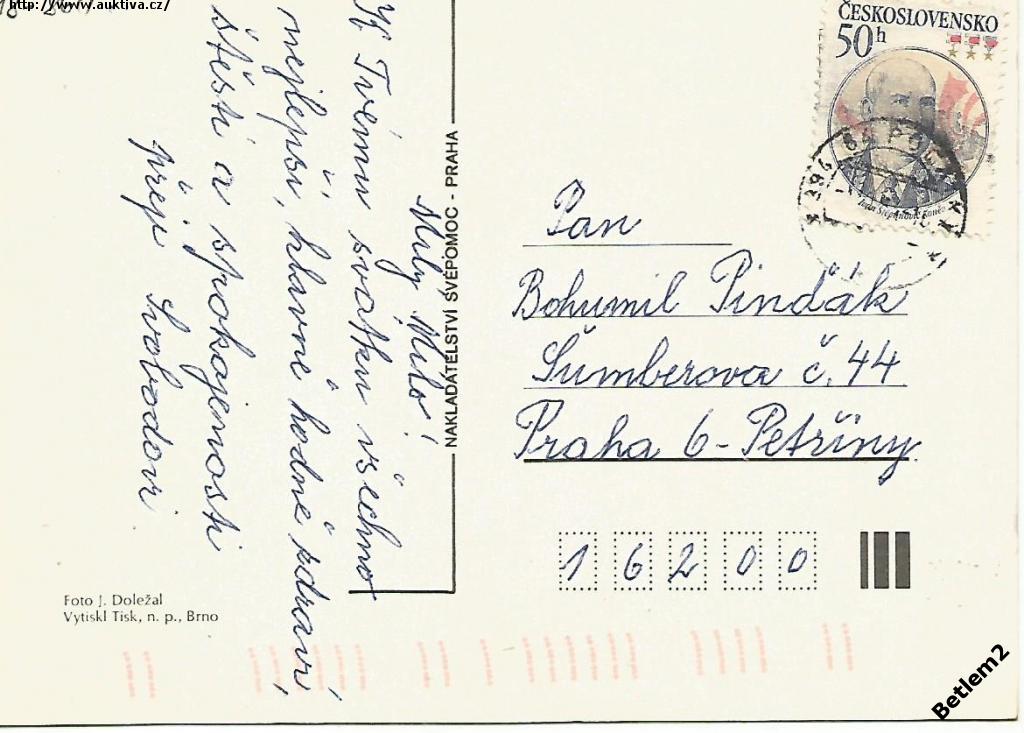 http://www.auktiva.cz/
Milý Milo!
K Tvému svátku všechno
nejlepší, hlavně hodně zdraví,
štěstí a spokojenosti
přejí Svobodovi
NAKLADATELSTVÍ SVÉPOMOC - PRAHA
ČESKOSLOVENSKO
50h
Pan
Bohumil Pindák
Šumberova č. 44
Praha 6 - Petřiny
16200
Foto J. Doležal
Vytiskl Tisk, n. p., Brno
Betlem2